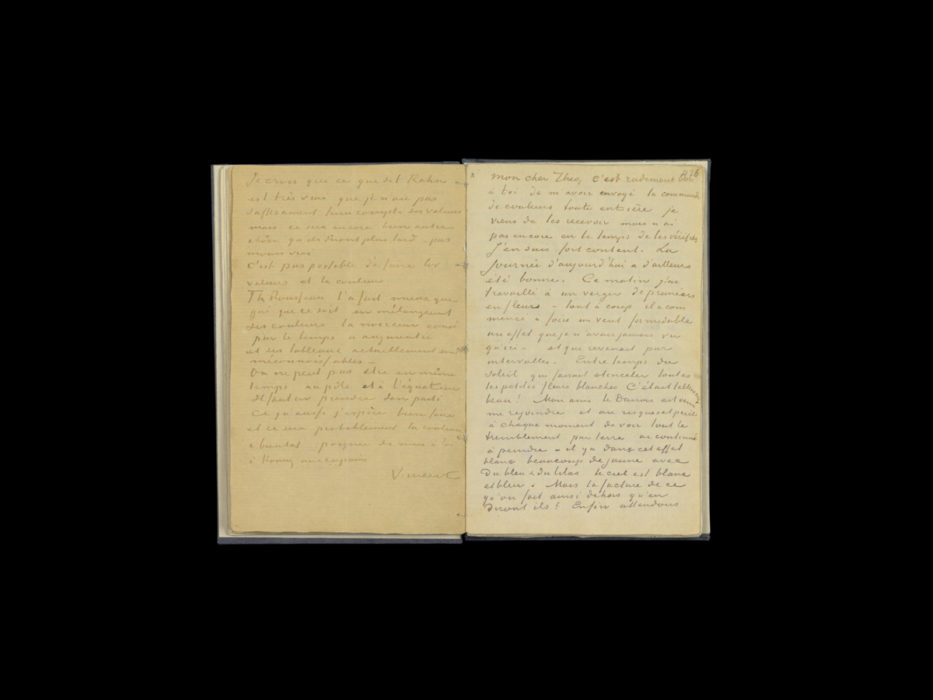 Je crois que ce que dit Kahn
est très vrai que je n'ai pas
suffisamment tenu compte des valeurs
mais ce sera encore bien autre
chose qu'ils diront plus tard – pas
moins vrai
C'est pas possible de faire les
valeurs et la couleur
Th Rousseau l'a fait mieux que
qui que ce soit en mélangeant
ses couleurs la noirceur
par le temps a augmenté
et ses tableaux actuellement sont
méconnaissables –
On ne peut pas être en même
temps au pôle et à l'équateur
Il faut en prendre son parti
Ce qu'aussi j'espère bien faire
et ce sera probablement la couleur
à bientot – poignée de main à toi
à Koning
Vincent
mon cher Theo, c'est rudement bien
à toi de m'avoir envoyé la commande
de couleurs toute entière je
viens de les recevoir mais n'ai
pas encore eu le temps de les vérifier
J'en suis fort content. La
journée d'aujourd'hui a d'ailleurs
eté bonne. Ce matin j'ai
travaillé à un verger de pruniers
en fleurs – tout à coup il a com
mencé à faire un vent formidable
un effet que je n'avais jamais vu
qu'ici – et qui revenait par
intervalles. Entretemps du
soleil qui faisait etinceler toutes
les petites fleurs blanches C'était tellement
beau! Mon ami le Danois est venu
me rejoindre et au risque et peril
à chaque moment de voir tout le
tremblement par terre ai continué
à peindre – il y a dans cet effet
blanc beaucoup de jaune avec
du bleu & du lilas le ciel est blanc
et bleu. Mais la facture de ce
qu'on fait ainsi dehors qu'en
diront ils? Enfin attendons